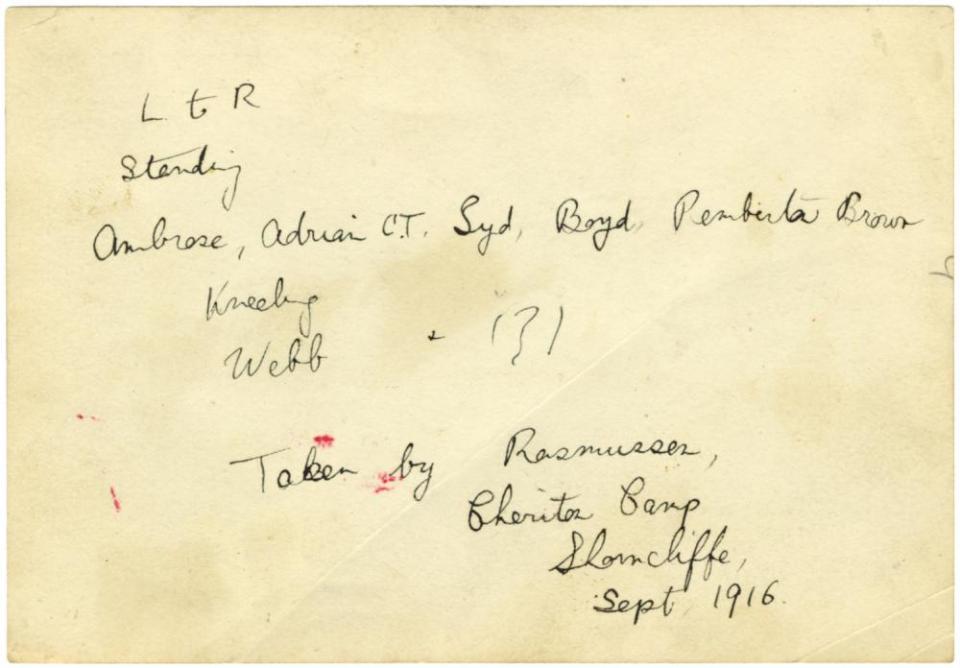 L to R
Standing
Ambrose, Adrian C.T. Syd, Boyd, Pemberton Brown
Kneeling
Webb + (?)
Taken by Rasmussen,
Cheriton Camp
Shorncliffe,
Sept 1916.